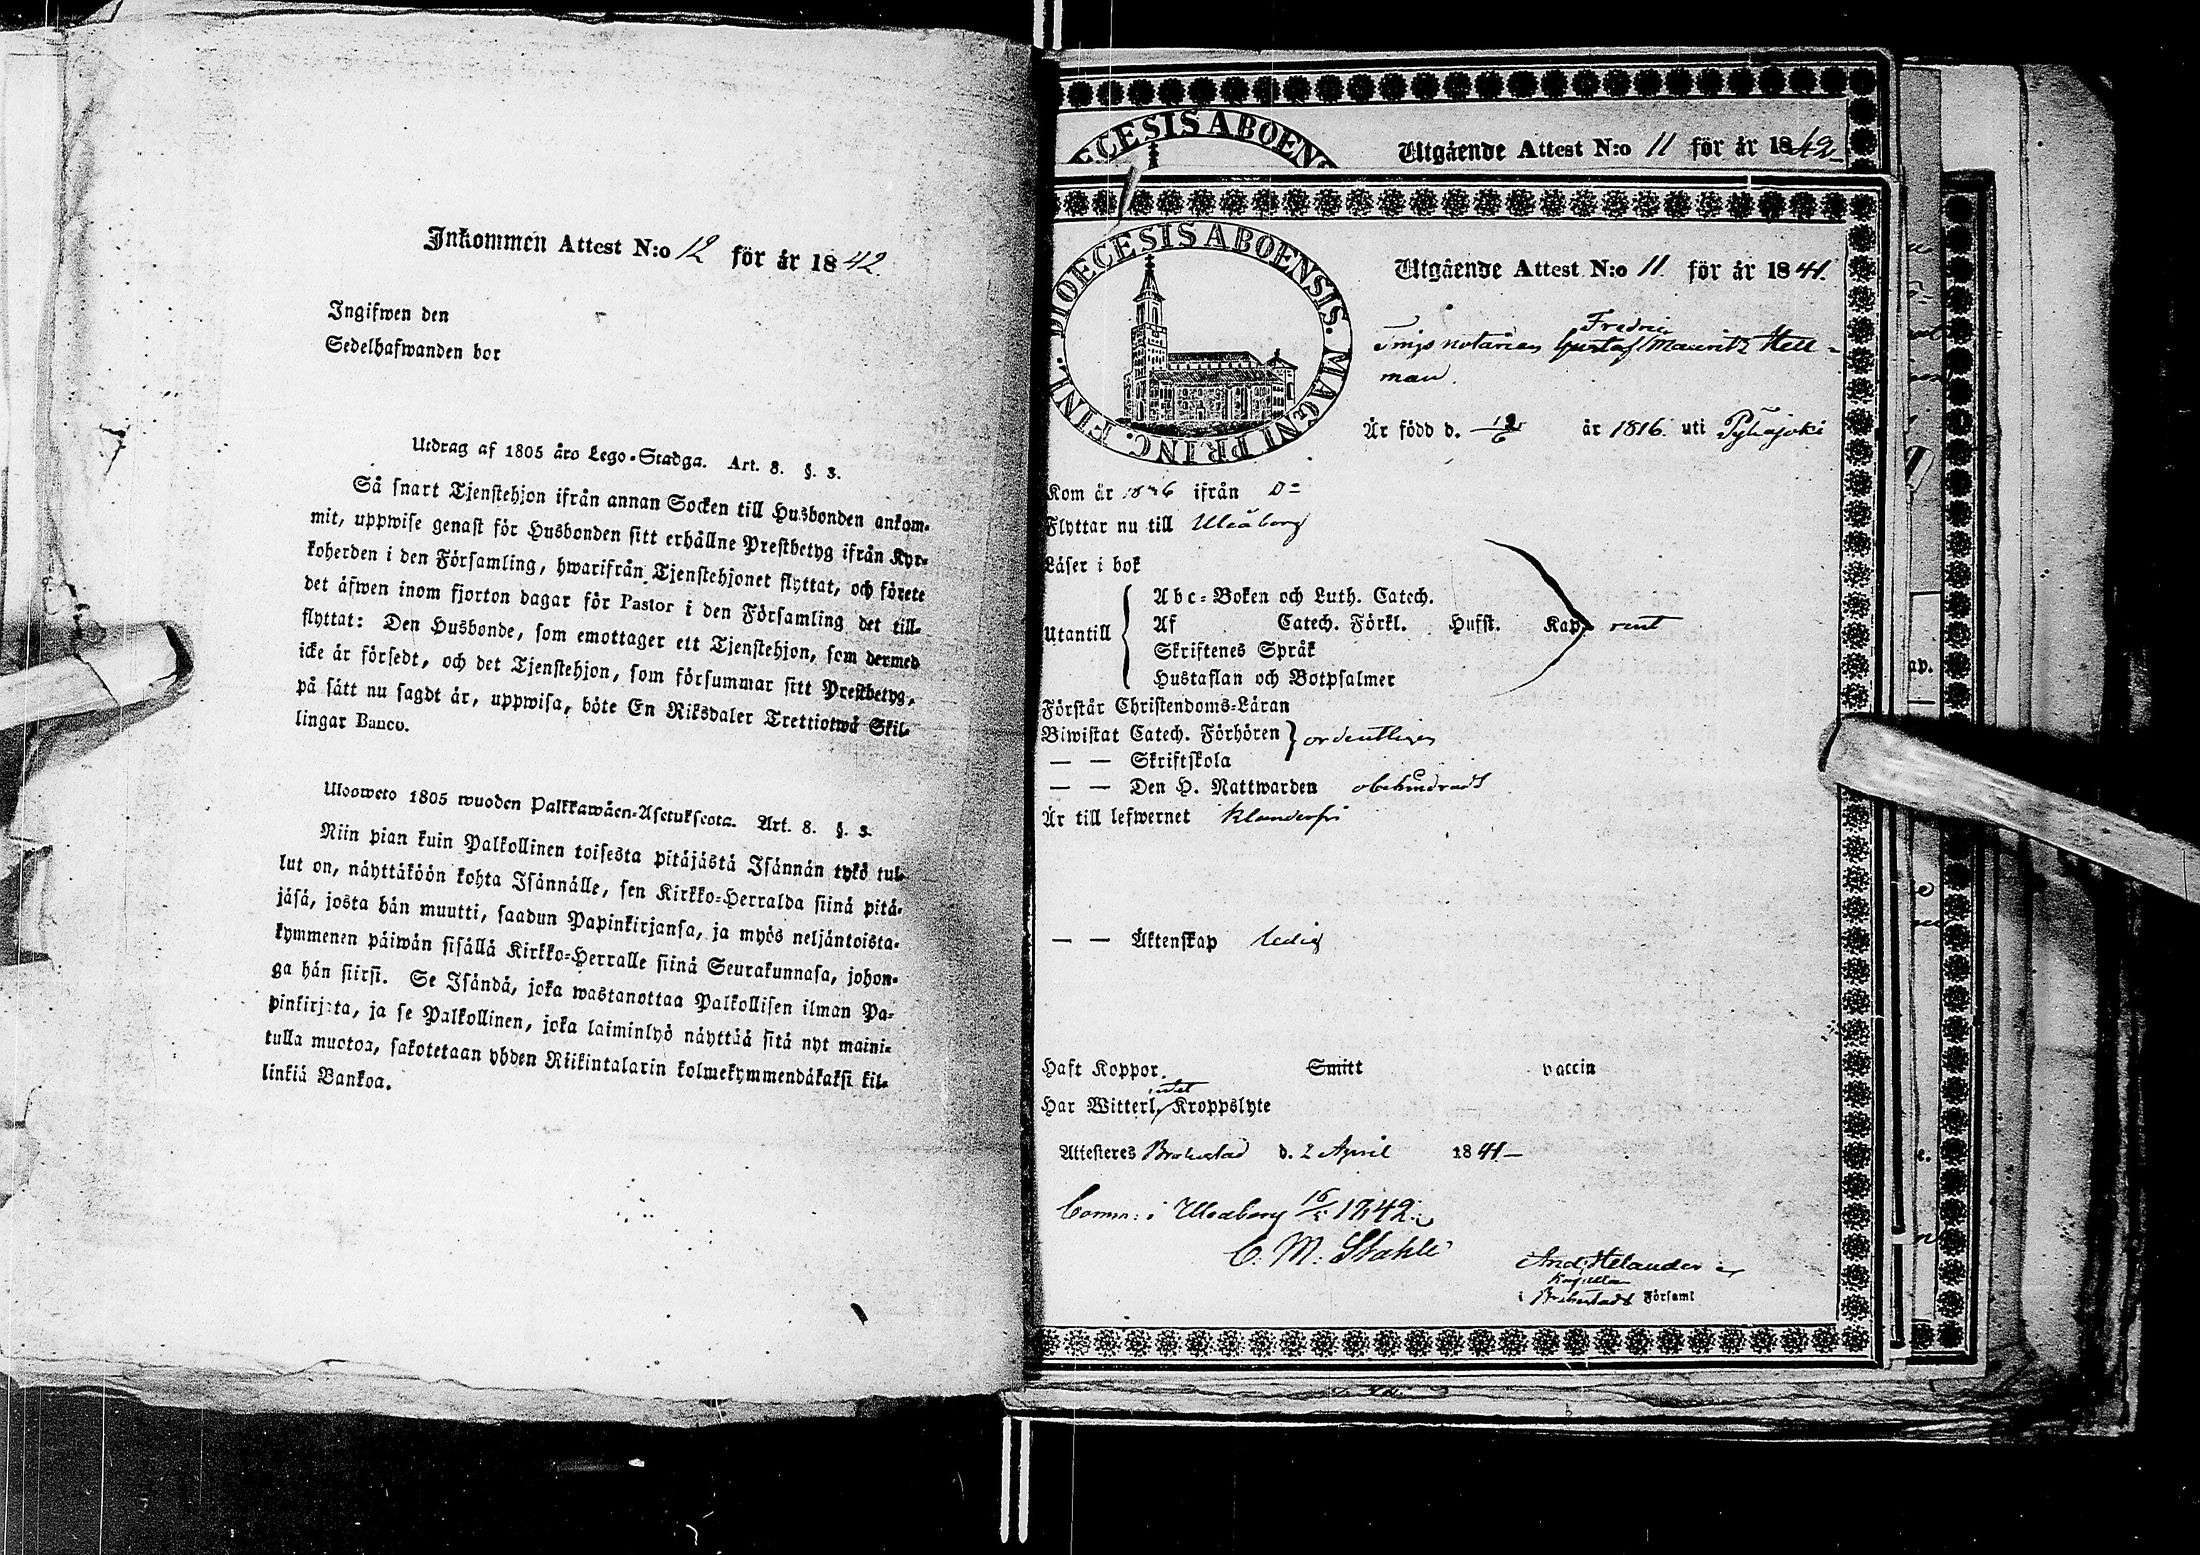 Inkommen Attest N:o 12 för år 1842.
Ingifwen den
Sedelhafwanden bor
Utdrag af 1805 års Lego-Stadga. Art. 8. §. 3.
Så snart Tjenstehjon ifrån annan Socken till Husbonden ankom-
mit, uppwise genast för Husbonden sitt erhållne Prestbetyg ifrån Kyr-
koherden i den Församling, hwarifrån Tjenstehjonet flyttat, och förete
det äfwen inom fjorton dagar för Pastor i den Församling det till-
flyttat: Den Husbonde, som emottager ett Tjenstehjon, som dermed
icke är försedt, och det Tjenstehjon, som försummar sitt Prestbetyg,
på sätt nu sagdt är, uppwisa, böte En Riksdaler Trettiotwå Skil-
lingar Banco.
Ulosweto 1805 wuoden Palkkawäen-Asetuksesta. Art. 8. §. 3.
Niin pian kuin Palkollinen toisesta pitäjästä Isännän tykö tul-
lut on, näyttäköön kohta Isännälle, sen Kirkko-Herralda siinä pitä-
jäsä, josta hän muutti, saadun Papinkirjansa, ja myös neljäntoista-
kymmenen päiwän sisällä Kirkko-Herralle siinä Seurakunnasa, johon-
ga hän siirsi. Se Isändä, joka wastanottaa Palkollisen ilman Pa-
pinkirjata, ja se Palkollinen, joka laiminlyö näyttää sitä nyt maini-
tulla muotoa, sakotetaan yhden Riikintalarin kolmekymmendäkaksi kil-
linkiä Bankoa.
ECESIS ABOENS
Utgående Attest N:o 11 för år 1842
DIOECESIS ABOENSIS. MAGNI PRINC. FINL.
Utgående Attest N:o 11 för år 1841.
Fredric
Tingsnotarien Gustaf Mauritz Hell-
man.
Är född d. år 1816. uti Pyhäjoki
Kom år ifrån D=
Flyttar nu till Uleåborg
Läser i bok
Utantill
Abc-Boken och Luth. Catech.
Af Catech. Förkl. Husst. Kap. rent
Skriftenes Språk
Hustaflan och Botpsalmer
Förstår Christendoms-Läran
Biwistat Catech. Förhören ordentligen
— — Skriftskola
— — Den H. Nattwarden obehindradt
Är till lefwernet klanderfri
— — Äktenskap ledig
Haft Koppor Smitt vaccin
intet
Har Witterl. Kroppslyte
Attesteres Brahestad d. 2 April 1841—
Comm: i Uleåborg 1842.
C. M. Stahle
And. Helander
i Brahestads Församl